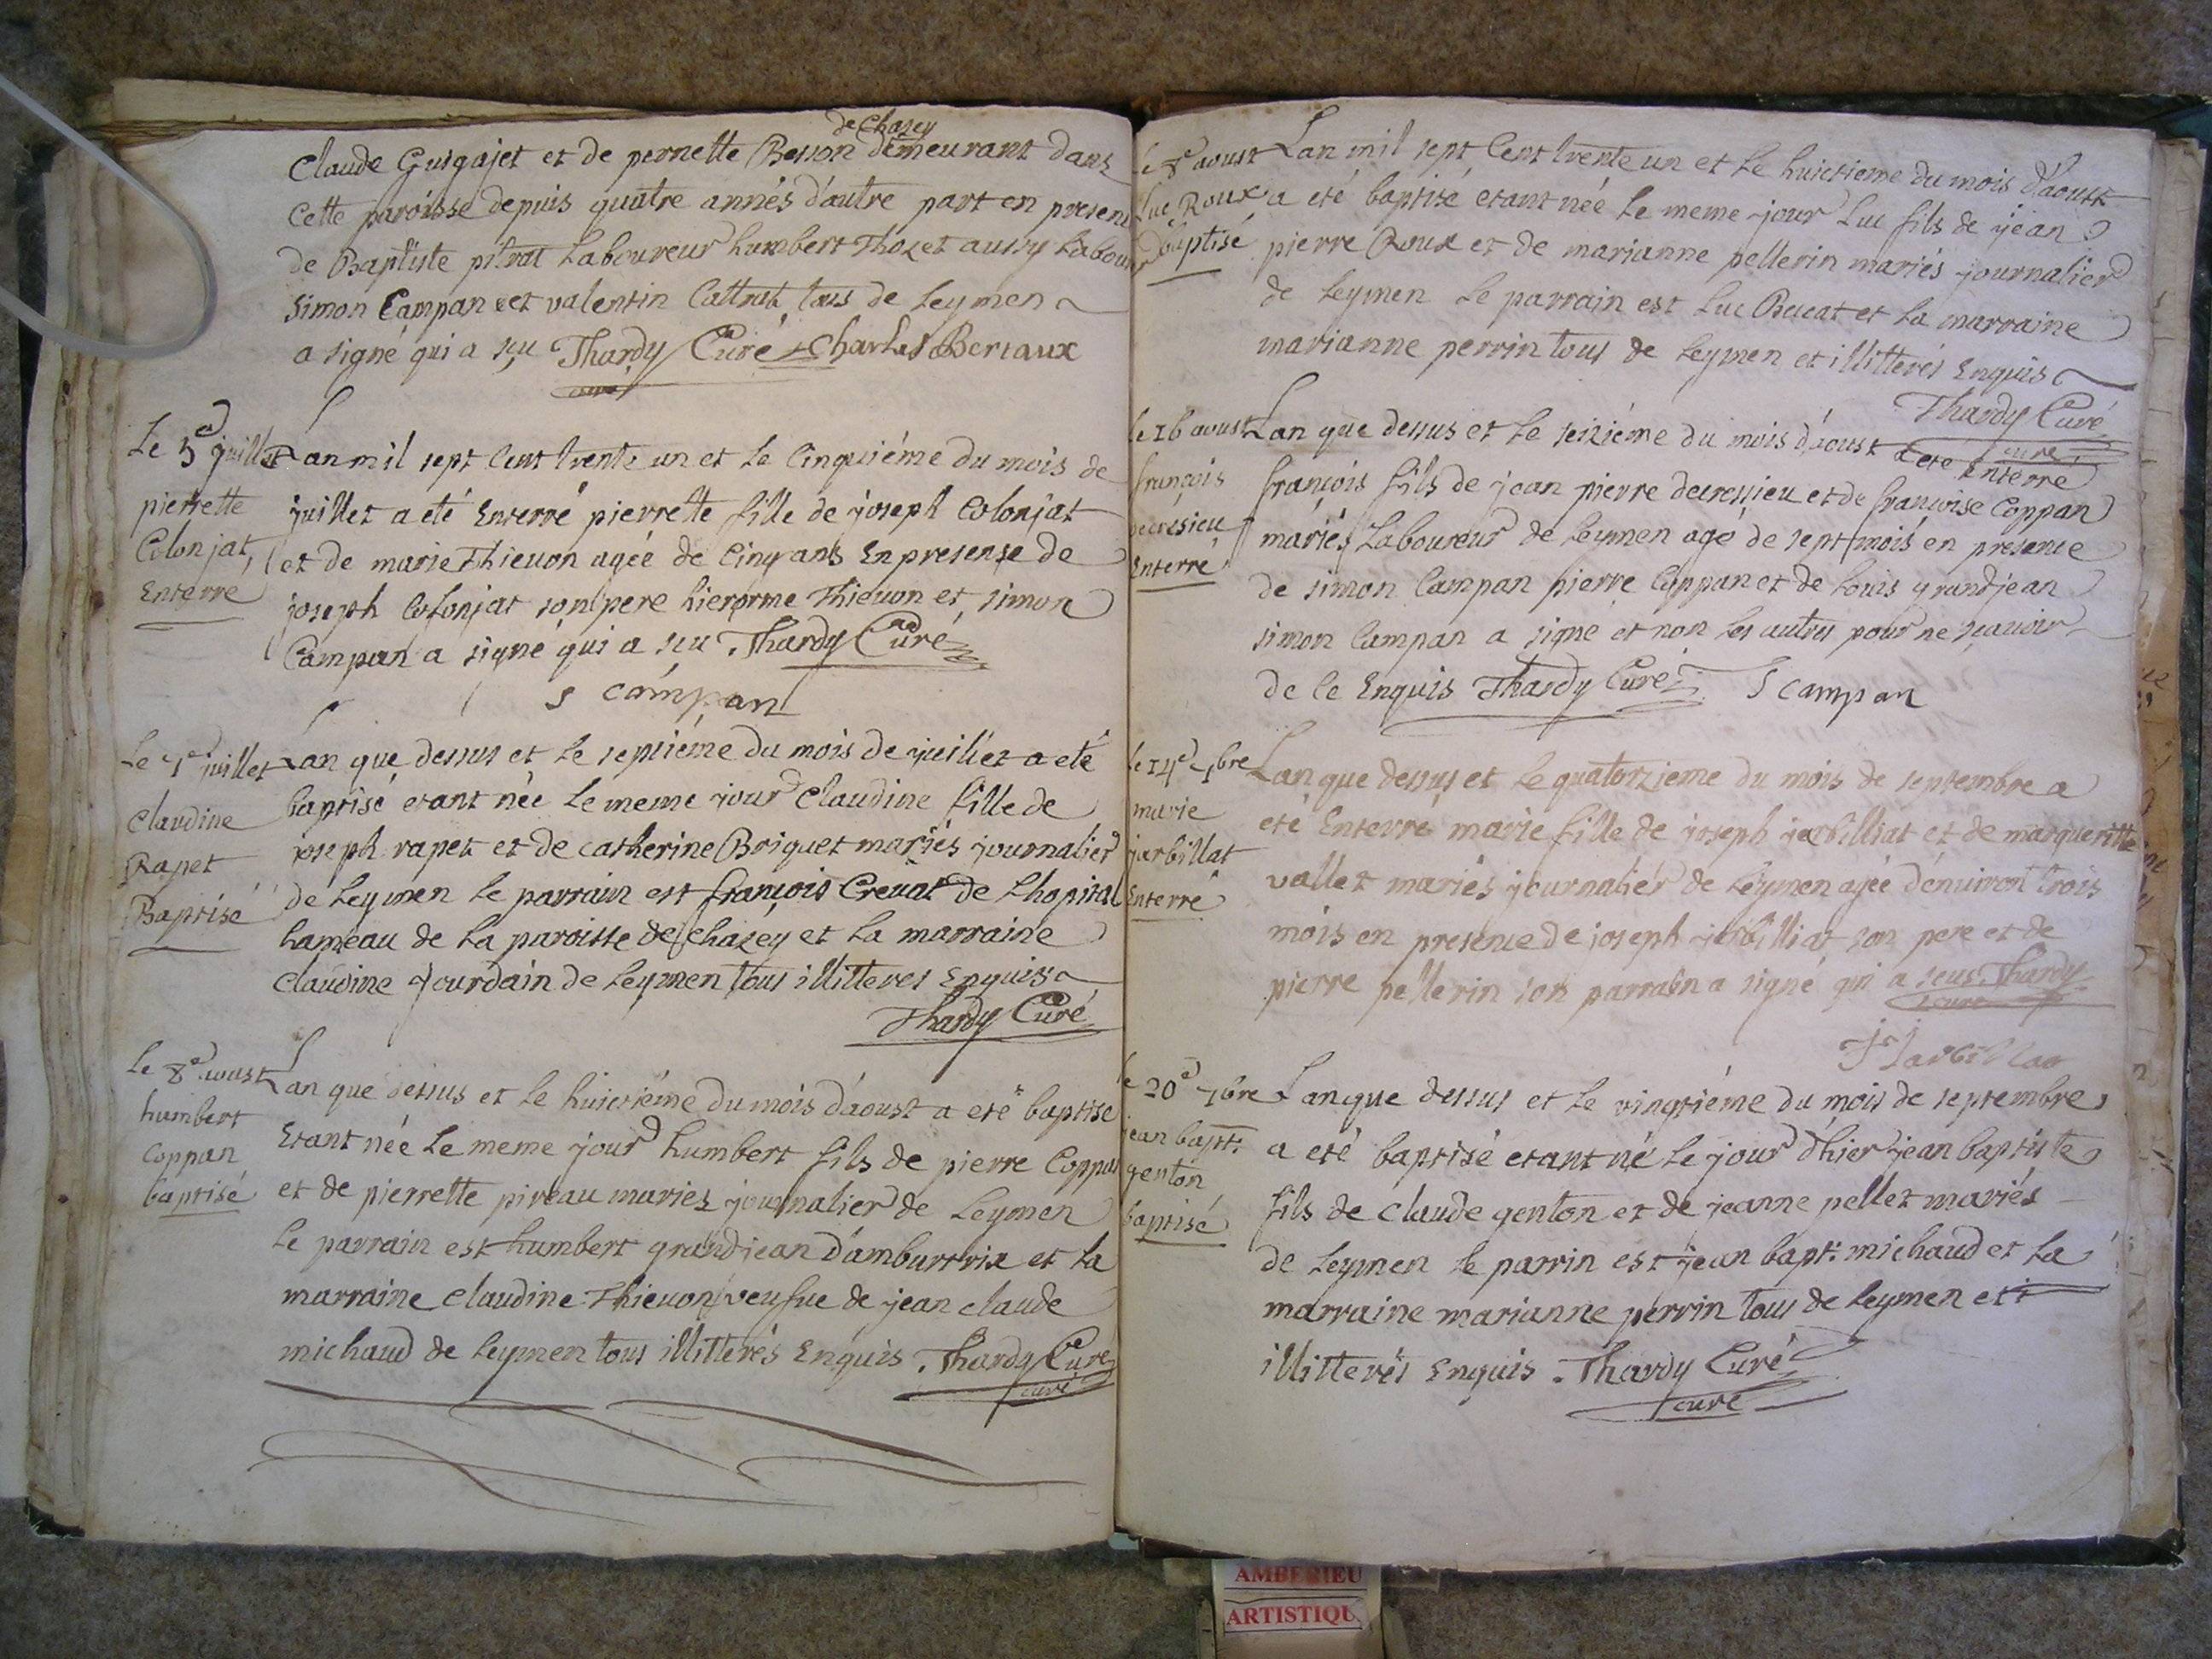 de Chazey
Claude Guigajet et de pernette Besson demeurant dans
Cette paroisse depuis quatre annés d'autre part en presen
de Baptiste pitrat Laboureur humbert Thozet aussy Labou
Simon Campan et valentin Cattrat tous de Leymen
a signé qui a sçu Thardy Curé Charles Bertaux
Le 5e juillet
pierrette
Colonjat
Enterré
Lan mil sept Cent trente un et le Cinquiéme du mois de
juillet a eté Enterré pierrette fille de joseph Colonjat
et de marie Thieuon agée de Cinq ans En presense de
joseph Colonjat son pere hierorme Thieuon et simon
Campan a signé qui a sçu Thardy Curé
S campan
Le 7e juillet
Claudine
Rapet
Baptisé
Lan que dessus et le septiéme du mois de juillet a eté
baptisé etant née le meme jour Claudine fille de
joseph rapet et de catherine Briquet mariés journalier
de Leymen le parrain est françois Creuat de Lhopital
hameau de la paroisse de Chazey et la marraine
Claudine Jourdain de Leymen tous illitteres Enquis
Thardy Curé
Le 8e aoust
humbert
Coppan
baptisé
Lan que dessus et le huictiéme du mois d'aoust a eté baptisé
Etant née le meme jour humbert fils de pierre Coppan
et de pierrette pireau maries journalier de Leymen
le parrain est humbert grandjean d'amburtrix et la
marraine Claudine Thieuon veufue de jean claude
michaud de Leymen tous illitterés Enquis Thardy Curé
curé
le 8e aoust
Luc Roux
baptisé
Lan mil sept Cent trente un et le huictieme du mois d'aoust
a eté baptisé etant née le meme jour Luc fils de jean
pierre Roux et de marianne pellerin mariés journalier
de Leymen le parrain est Luc Beucat et la marraine
marianne perrin tous de Leymen et illitterés Enquis
Thardy Curé
curé
le 16 aoust
françois
decresieu
Enterré
Lan que dessus et le seiziéme du mois d'aoust a eté Enterré
françois fils de jean pierre decressieu et de francoise Coppan
mariés Laboureur de Leymen agé de sept mois en presence
de simon Campan pierre Coppan et de Louis grandjean
simon Campan a signé et non les autres pour ne sçauoir
de ce Enquis Thardy Curé S campan
le 14e 7bre
marie
jarbillat
Enterré
Lan que dessus et le quatorzieme du mois de septembre a
eté Enterré marie fille de joseph jarbilliat et de margueritte
vallet mariés journaliér de Leymen agée d'enuiron trois
mois en presence de joseph jarbilliat son pere et de
pierre pellerin son parrain a signé qui a sceu Thardy
curé
J Jarbillat
le 20e 7bre
jean bapt:
genton
baptisé
Lan que dessus et le vingtiéme du mois de septembre
a eté baptisé etant né le jour d'hier jean baptiste
fils de Claude genton et de jeanne pellet mariés
de Leymen le parrin est jean bapt: michaud et la
marraine marianne perrin tous de Leymen et
illitterés Enquis . Thardy Curé
curé
AMBERIEU
ARTISTIQU